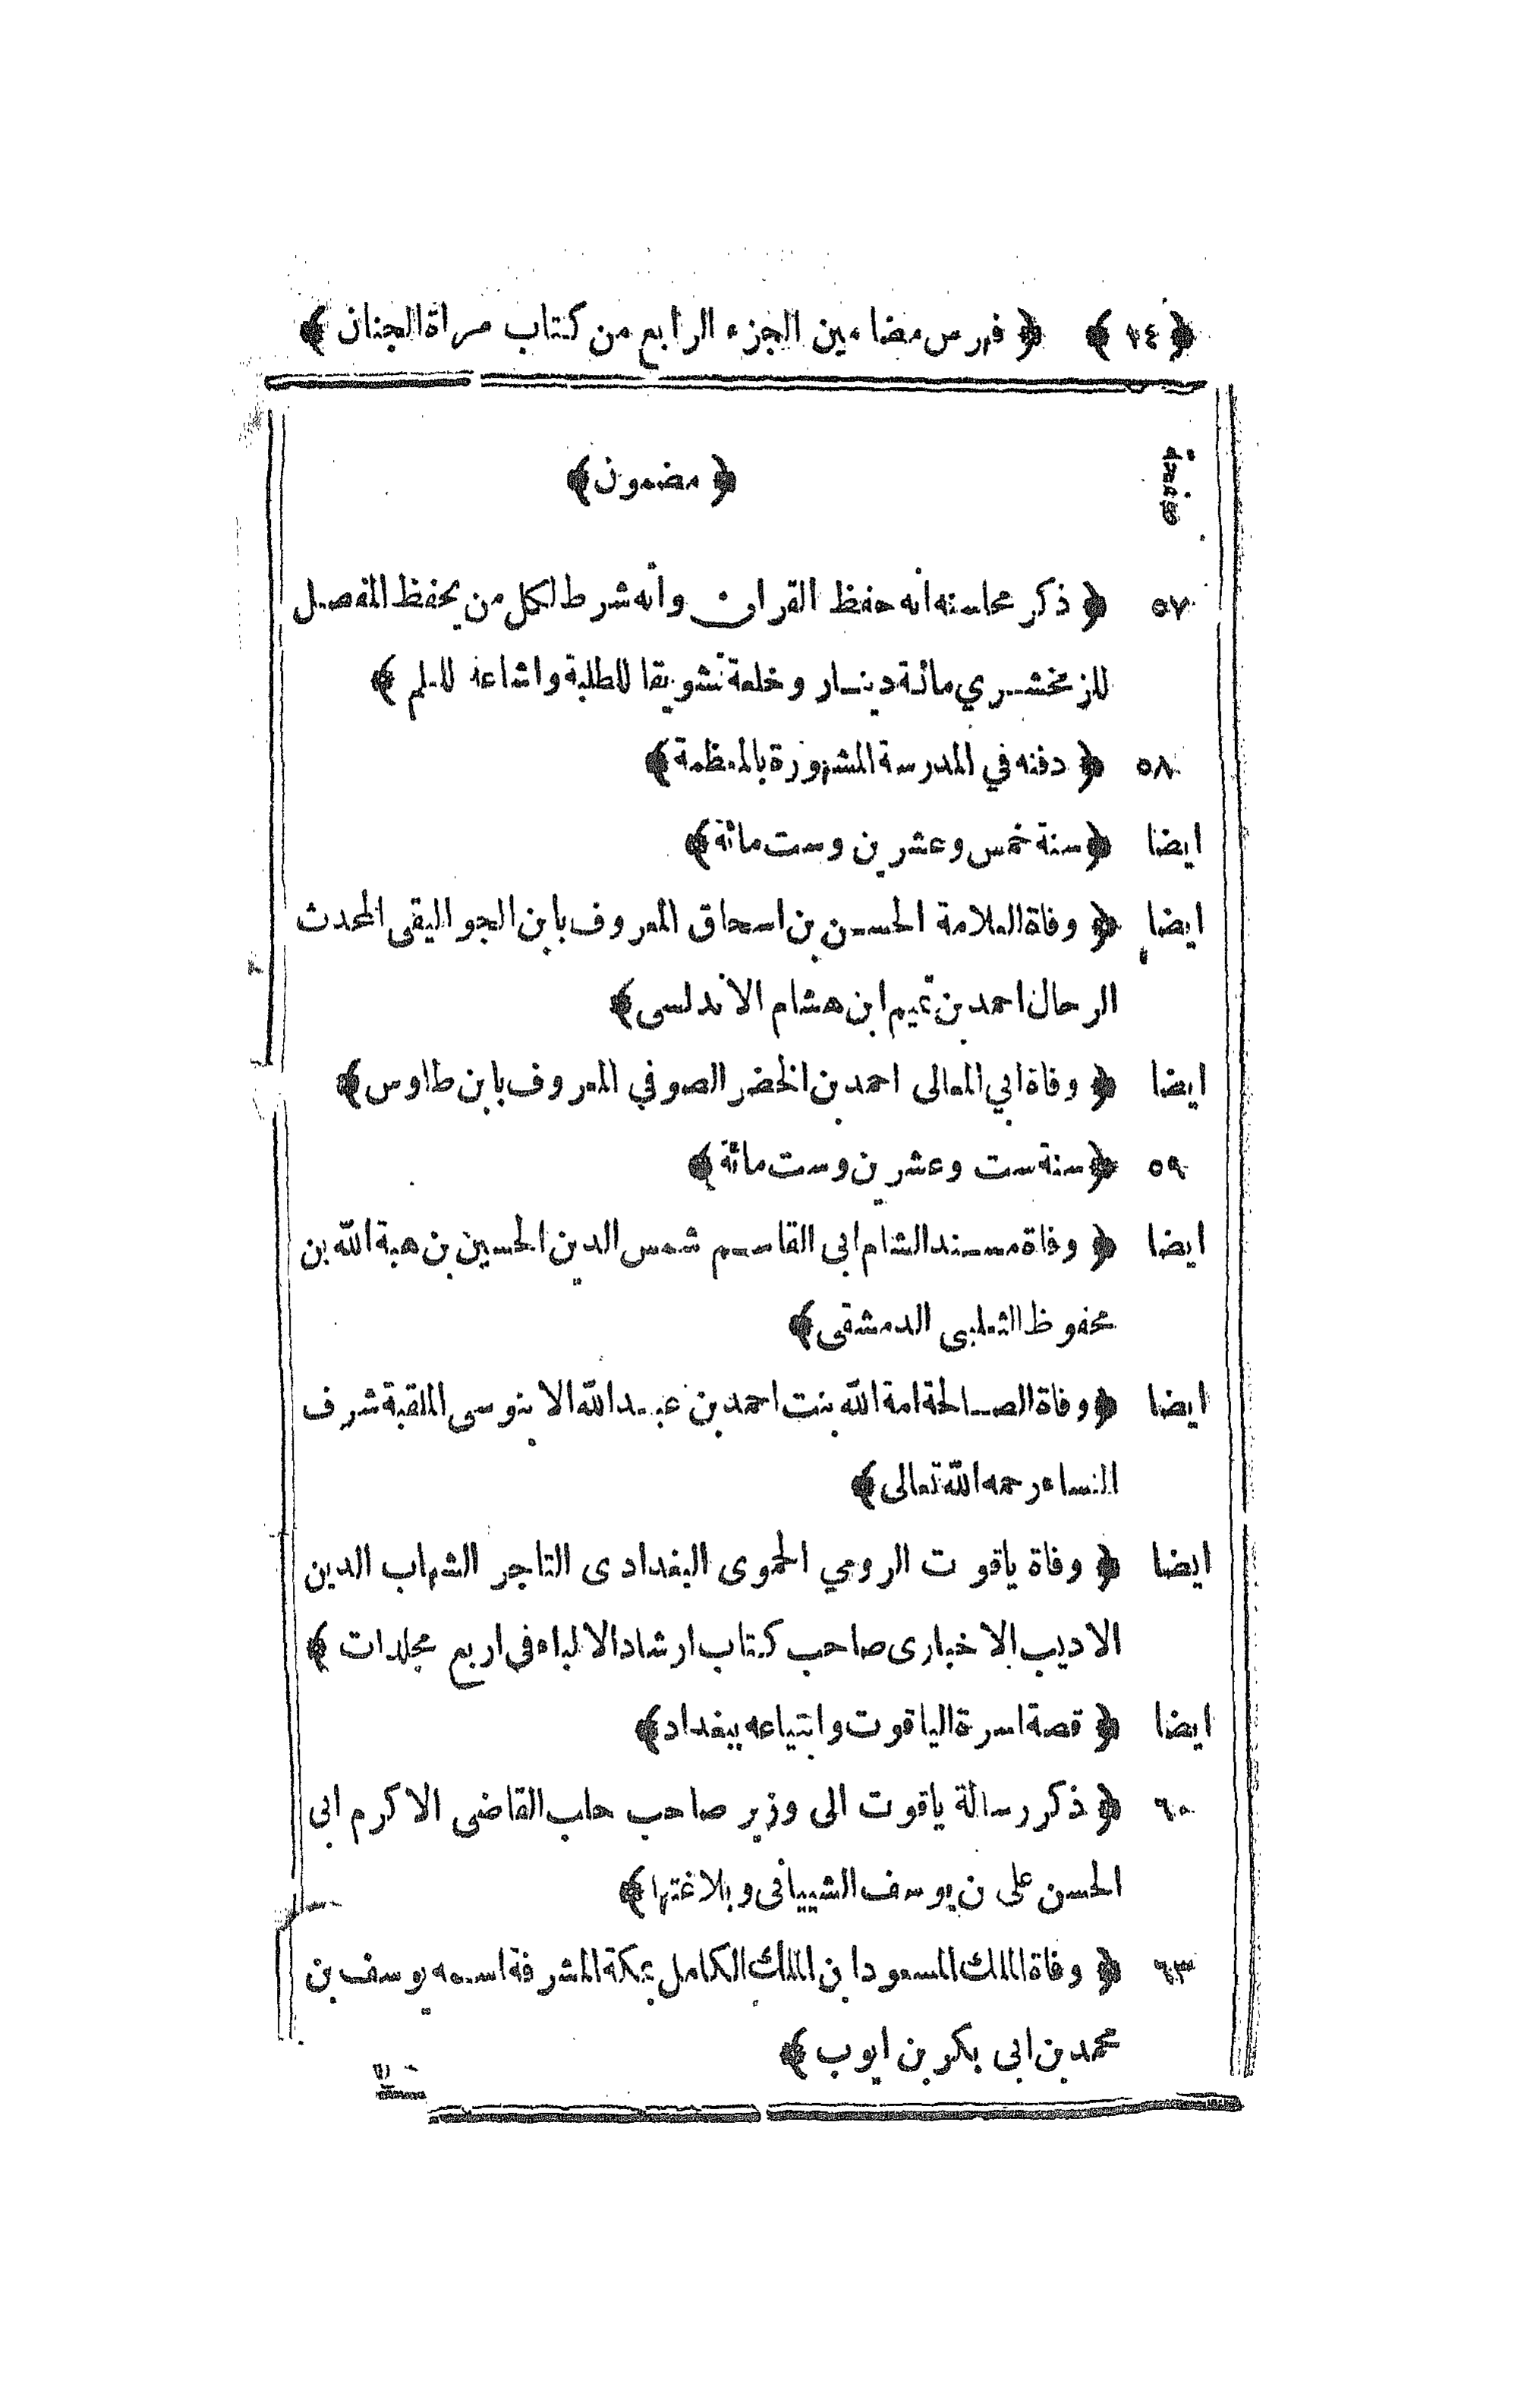 ﴿ ١٤ ﴾ ﴿ فهرس مضامين الجزء الرابع من كتاب مرآة الجنان ﴾
صفحة ﴿ مضمون ﴾
٥٧ ﴿ ذكر محاسنه أنه حفظ القرآن وأنه شرط لكل من يحفظ المفصل
للزمخشري مائة دينار وخلعة تشويقا للطلبة واشاعة للعلم ﴾
٥٨ ﴿ دفنه في المدرسة المشهورة بالمعظمة ﴾
ايضا ﴿ سنة خمس وعشرين وست مائة ﴾
ايضا ﴿ وفاة العلامة الحسن بن اسحاق المعروف بابن الجواليقى المحدث
الرحال احمد بن تميم ابن هشام الاندلسى ﴾
ايضا ﴿ وفاة ابي المعالى احمد بن الخضر الصوفي المعروف بابن طاوس ﴾
٥٩ ﴿ سنة ست وعشرين وست مائة ﴾
ايضا ﴿ وفاة مسند الشام ابى القاسم شمس الدين الحسين بن هبة الله بن
محفوظ الثعلبى الدمشقى ﴾
ايضا ﴿ وفاة الصالحة امة الله بنت احمد بن عبد الله الابنوسى الملقبة شرف
النساء رحمه الله تعالى ﴾
ايضا ﴿ وفاة ياقوت الرومي الحموى البغدادى التاجر الشهاب الدين
الاديب الاخبارى صاحب كتاب ارشاد الالباء فى اربع مجلدات ﴾
ايضا ﴿ قصة اسرة الياقوت وابتياعه ببغداد ﴾
٦٠ ﴿ ذكر رسالة ياقوت الى وزير صاحب حلب القاضى الاكرم ابى
الحسن على بن يوسف الشيبانى وبلاغتها ﴾
٦٣ ﴿ وفاة الملك المسعود ابن الملك الكامل بمكة المشرفة اسمه يوسف بن
محمد بن ابى بكر بن ايوب ﴾